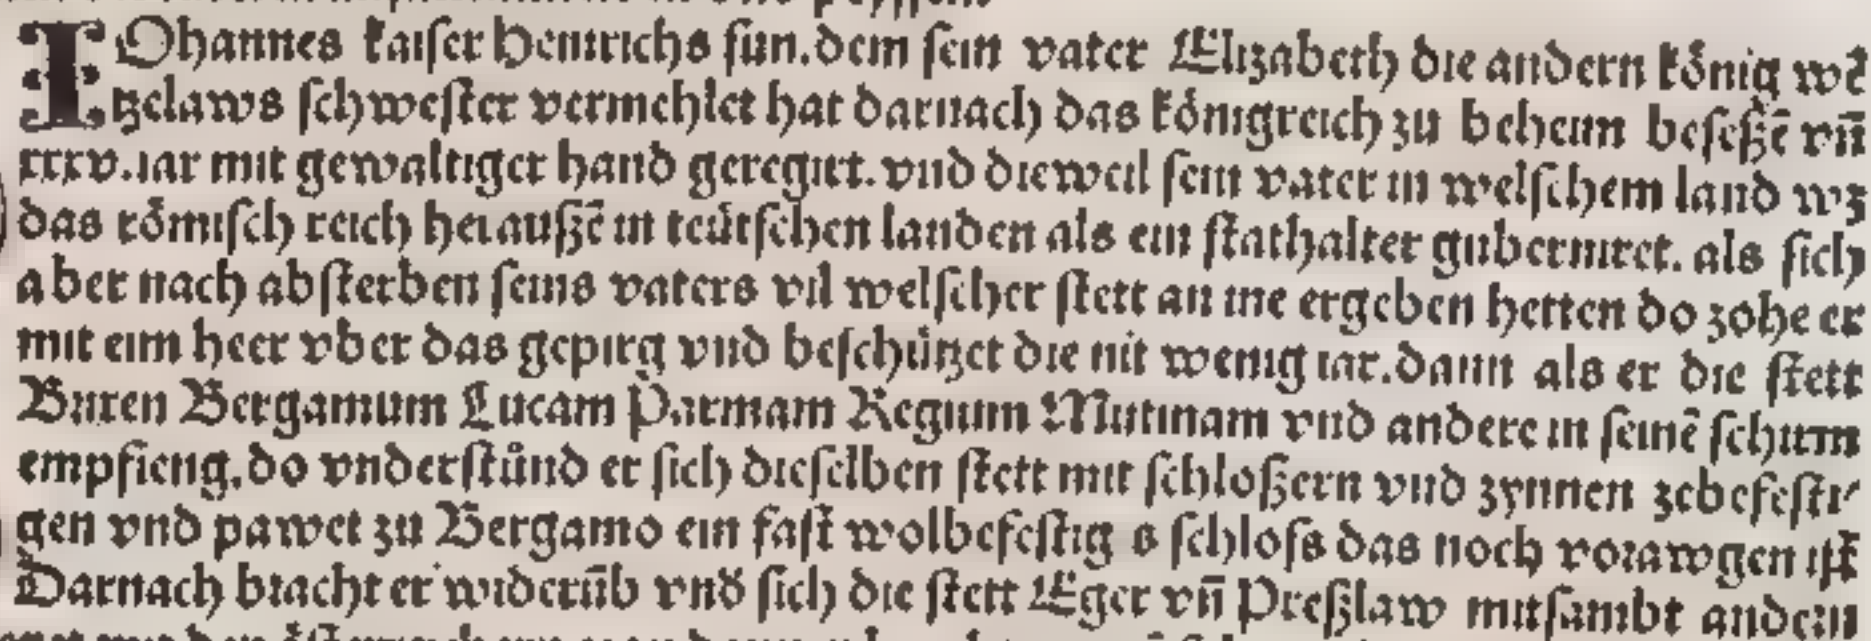 IOhannes kaiser Heinrichs sun. dem sein vater Elizabeth die andern kőnig wē
tzelaws schwester vermehlet hat darnach das kőnigreich zu beheim beseßē vñ
xxxv. iar mit gewaltiger hand geregirt. vnd dieweil sein vater in welschem land wz
das rőmisch reich heraußē in teütschen landen als ein stathalter guberniret. als sich
aber nach absterben seins vaters vil welscher stett an ine ergeben hetten do zohe er
mit eim heer vber das gepirg vnd beschützet die nit wenig iar. dann als er die stett
Bergamum Lucam Parmam Regium Mutinam vnd andere in seinē schirm
empfieng. do vnderstůnd er sich dieselben stett mit schloßern vnd zynnen zebefesti-
gen vnd pawet zu Bergamo ein fast wolbefestigs schloss das noch vorawgen ist
Darnach bracht er widerūb vnd sich die stett Eger vñ Preßlaw mitsambt andern